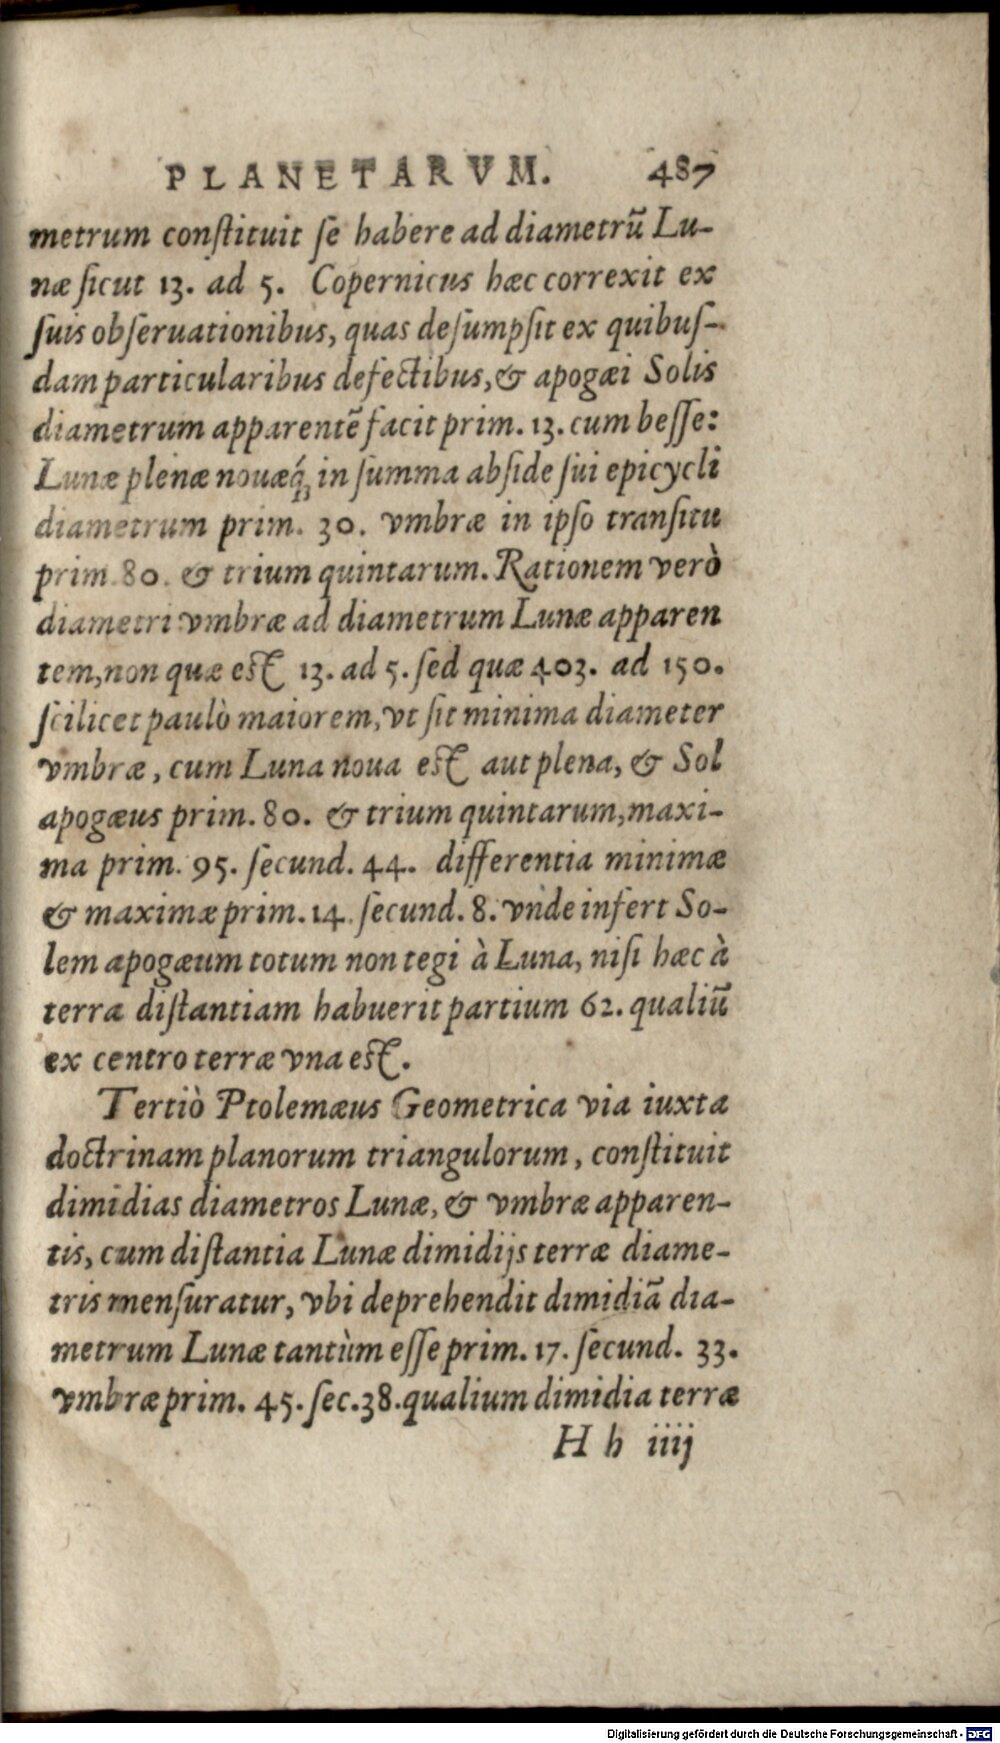 PLANETARVM. 487
metrum conſtituit ſe habere ad diametrũ Lu-
næ ſicut 13. ad 5. Copernicus hæc correxit ex
ſuis obſeruationibus, quas deſumpſit ex quibuſ-
dam particularibus defectibus, & apogæi Solis
diametrum apparentẽ facit prim. 13. cum beſſe:
Lunæ plenæ nouæq́; in ſumma abſide ſui epicycli
diametrum prim. 30. vmbræ in ipſo tranſitu
prim. 80. & trium quintarum. Rationem verò
diametri vmbræ ad diametrum Lunæ apparen
tem, non quæ eſt 13. ad 5. ſed quæ 403. ad 150.
ſcilicet paulò maiorem, vt ſit minima diameter
vmbræ, cum Luna noua eſt aut plena, & Sol
apogæus prim. 80. & trium quintarum, maxi-
ma prim. 95. ſecund. 44. differentia minimæ
& maximæ prim. 14. ſecund. 8. vnde infert So-
lem apogæum totum non tegi à Luna, niſi hæc à
terra diſtantiam habuerit partium 62. qualiũ
ex centro terræ vna eſt.
Tertiò Ptolemæus Geometrica via iuxta
doctrinam planorum triangulorum, conſtituit
dimidias diametros Lunæ, & vmbræ apparen-
tis, cum diſtantia Lunæ dimidijs terræ diame-
tris menſuratur, vbi deprehendit dimidiã dia-
metrum Lunæ tantùm eſſe prim. 17. ſecund. 33.
vmbræ prim. 45. ſec. 38. qualium dimidia terræ
H h iiij
Digitalisierung gefördert durch die Deutsche Forschungsgemeinschaft - DFG